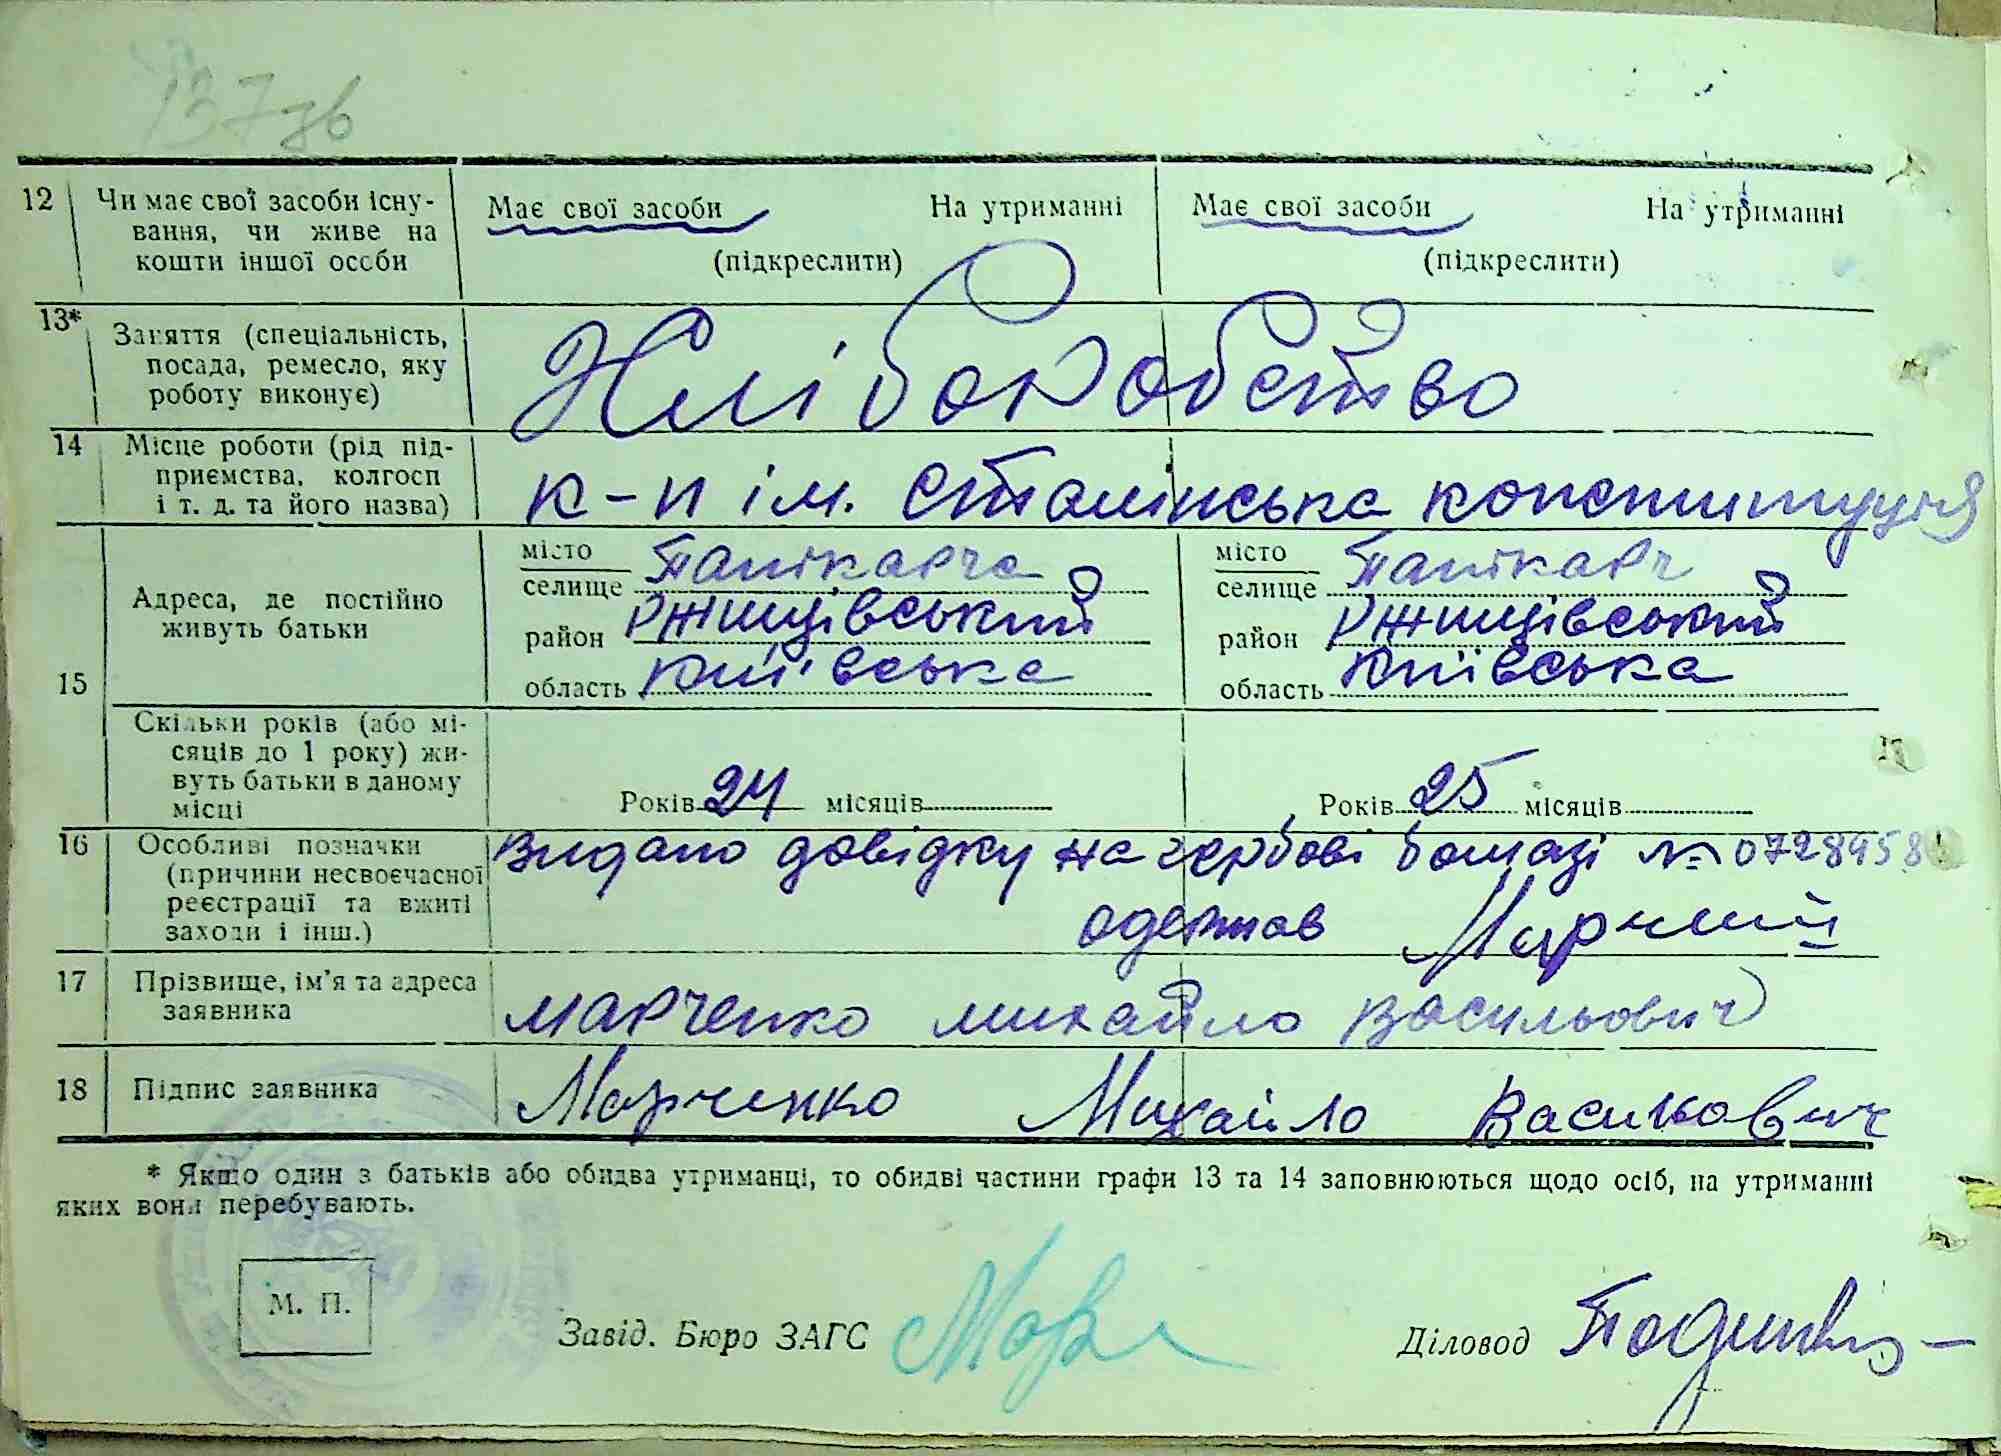 137 зв
12 Чи має свої засоби існу- Має свої засоби На утриманні Має свої засоби На утриманні
вання, чи живе на
кошти іншої особи (підкреслити) (підкреслити)
13* Заняття (спеціальність,
посада, ремесло, яку Хліборобство
роботу виконує)
14 Місце роботи (рід під-
приємства, колгосп к-п ім. Сталінська конституція
і т. д. та його назва)
15 Адреса, де постійно живуть батьки
місто селище Панікарча місто селище Панікарч
район Ржищівський район Ржищівський
область Київська область Київська
Скільки років (або мі-
сяців до 1 року) жи-
вуть батьки в даному
місці Років 24 місяців Років 25 місяців
16 Особливі позначки Видано довідку на гербові бомазі № 0728958
(причини несвоєчасної
реєстрації та вжиті одержав
заходи і інш.)
17 Прізвище, ім'я та адреса
заявника Марченко Михайло Васильович
18 Підпис заявника Марченко Михайло Васильович
* Якщо один з батьків або обидва утриманці, то обидві частини графи 13 та 14 заповнюються щодо осіб, на утриманні
яких вони перебувають.
М. П.
Завід. Бюро ЗАГС Діловод